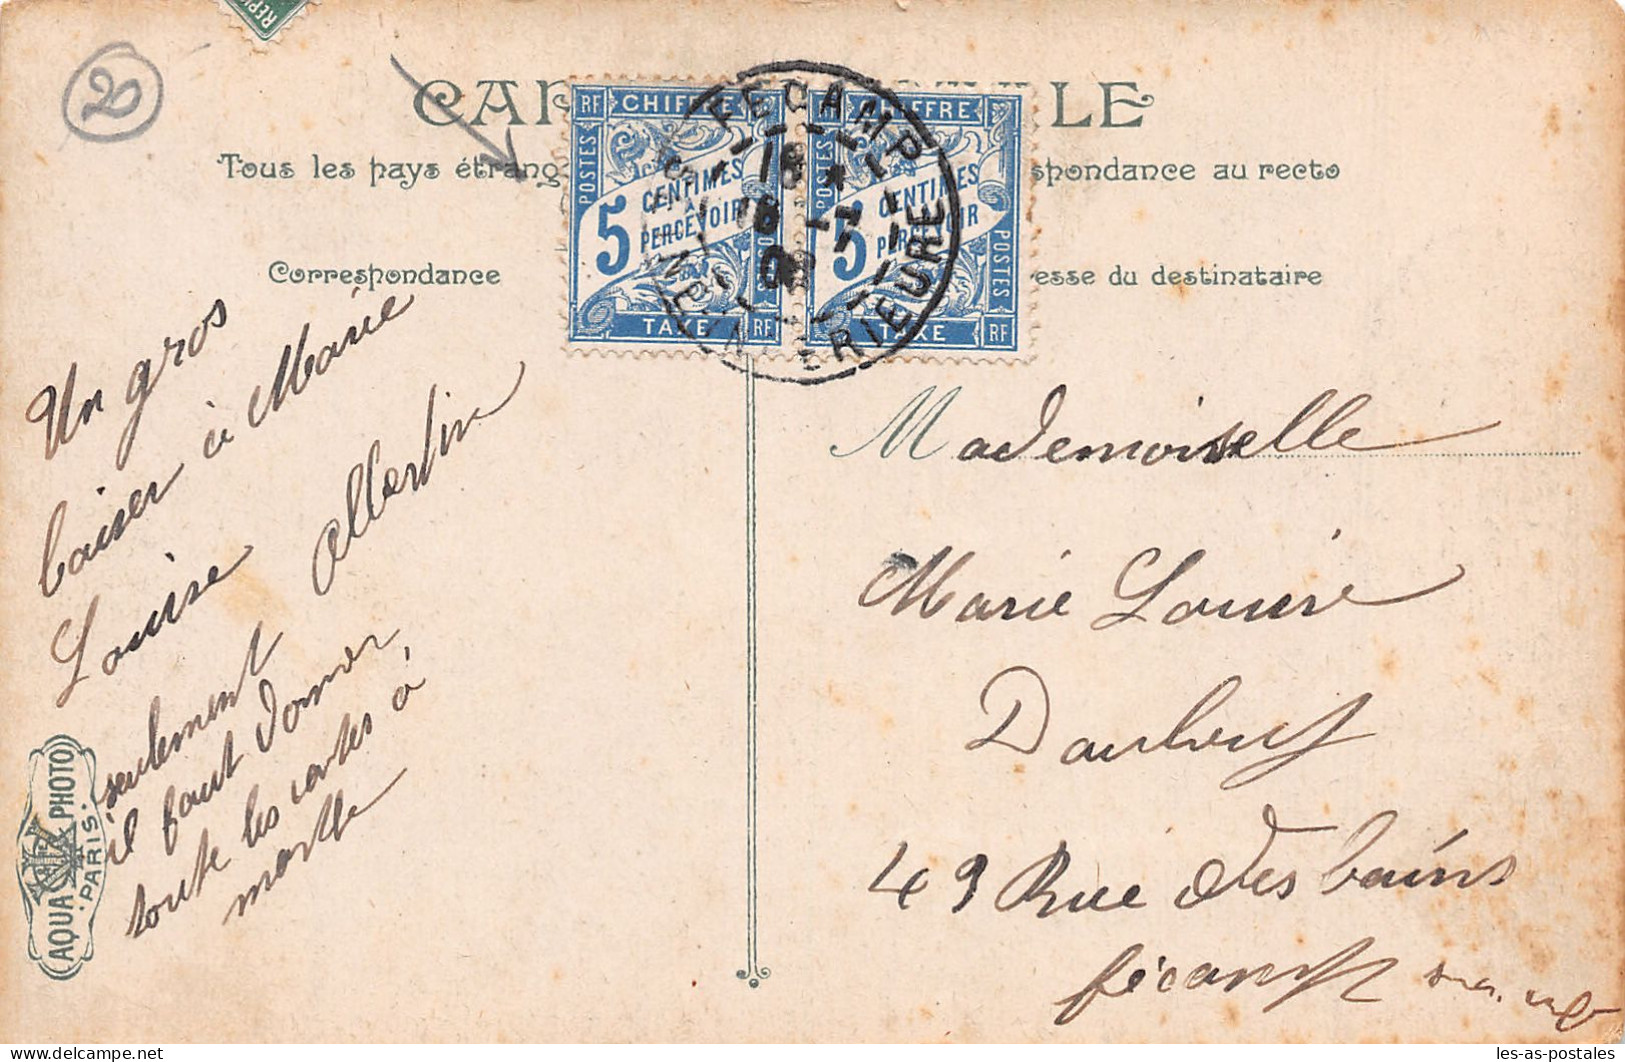 REP
20
CAR LE
Tous les pays étrang spondance au recto
Correspondance esse du destinataire
RF CHIFFRE
POSTES
5 CENTIMES
À
PERCEVOIR
POSTES
TAXE RF
RF CHIFFRE
POSTES
5 CENTIMES
PERCEVOIR
POSTES
TAXE RF
FECAMP
18
16 -1
INFERIEURE
Un gros
baiser à Marie
Louise Albertine
seulement
il faut donner,
toute les cartes à
AQUA PHOTO
PARIS
Mademoiselle
Marie Louise
49 Rue des bains
fécamp
les-as-postales